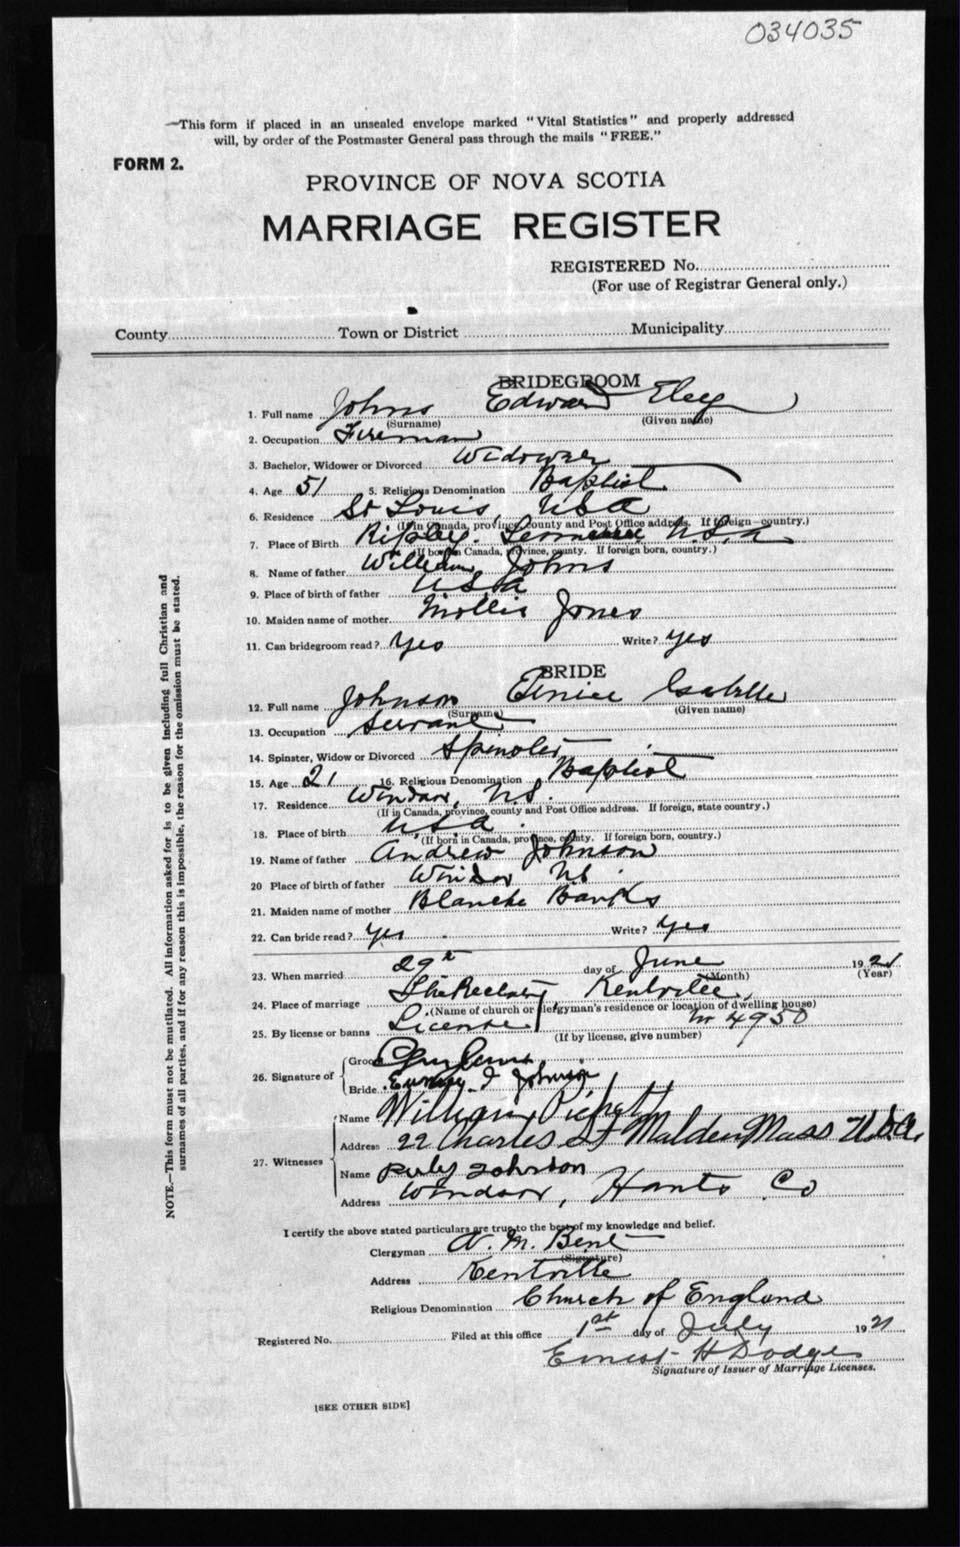 034035
—This form if placed in an unsealed envelope marked "Vital Statistics" and properly addressed
will, by order of the Postmaster General pass through the mails "FREE."
FORM 2.
PROVINCE OF NOVA SCOTIA
MARRIAGE REGISTER
REGISTERED No.
(For use of Registrar General only.)
County Town or District Municipality
BRIDEGROOM
1. Full name Johns Edward Eley
(Surname) (Given name)
2. Occupation Fireman
3. Bachelor, Widower or Divorced Widower
4. Age 51 5. Religious Denomination Baptist
6. Residence St Louis, USA
(If in Canada, province, county and Post Office address. If foreign—country.)
7. Place of Birth Ripley. Tennessee U.S.A
(If born in Canada, province, county. If foreign born, country.)
8. Name of father William Johns
9. Place of birth of father USA
10. Maiden name of mother Mollie Jones
11. Can bridegroom read? Yes Write? Yes
BRIDE
12. Full name Johnson Isabelle
(Surname) (Given name)
13. Occupation Servant
14. Spinster, Widow or Divorced Spinster
15. Age 21 16. Religious Denomination Baptist
17. Residence Windsor, N.S.
(If in Canada, province, county and Post Office address. If foreign, state country.)
18. Place of birth U.S.A.
(If born in Canada, province, county. If foreign born, country.)
19. Name of father Andrew Johnson
20 Place of birth of father Windsor NS
21. Maiden name of mother Blanche Banks
22. Can bride read? Yes Write? Yes
23. When married 29th day of June 1921
(Month) (Year)
24. Place of marriage The Rectory Kentville,
(Name of church or clergyman's residence or location of dwelling house)
25. By license or banns License No 4950
(If by license, give number)
26. Signature of Groom
Bride Johnson
27. Witnesses Name William
Address 22 Charles St Malden Mass U.S.A.
Name Johnson
Address Windsor, Hants Co
I certify the above stated particulars are true to the best of my knowledge and belief.
Clergyman A. M. Bent
(Signature)
Address Kentville
Religious Denomination Church of England
Registered No. Filed at this office 1st day of July 1921
Ernest H Dodge
Signature of Issuer of Marriage Licenses.
[SEE OTHER SIDE]
NOTE.—This form must not be mutilated. All information asked for is to be given including full Christian and
surnames of all parties, and if for any reason this is impossible, the reason for the omission must be stated.